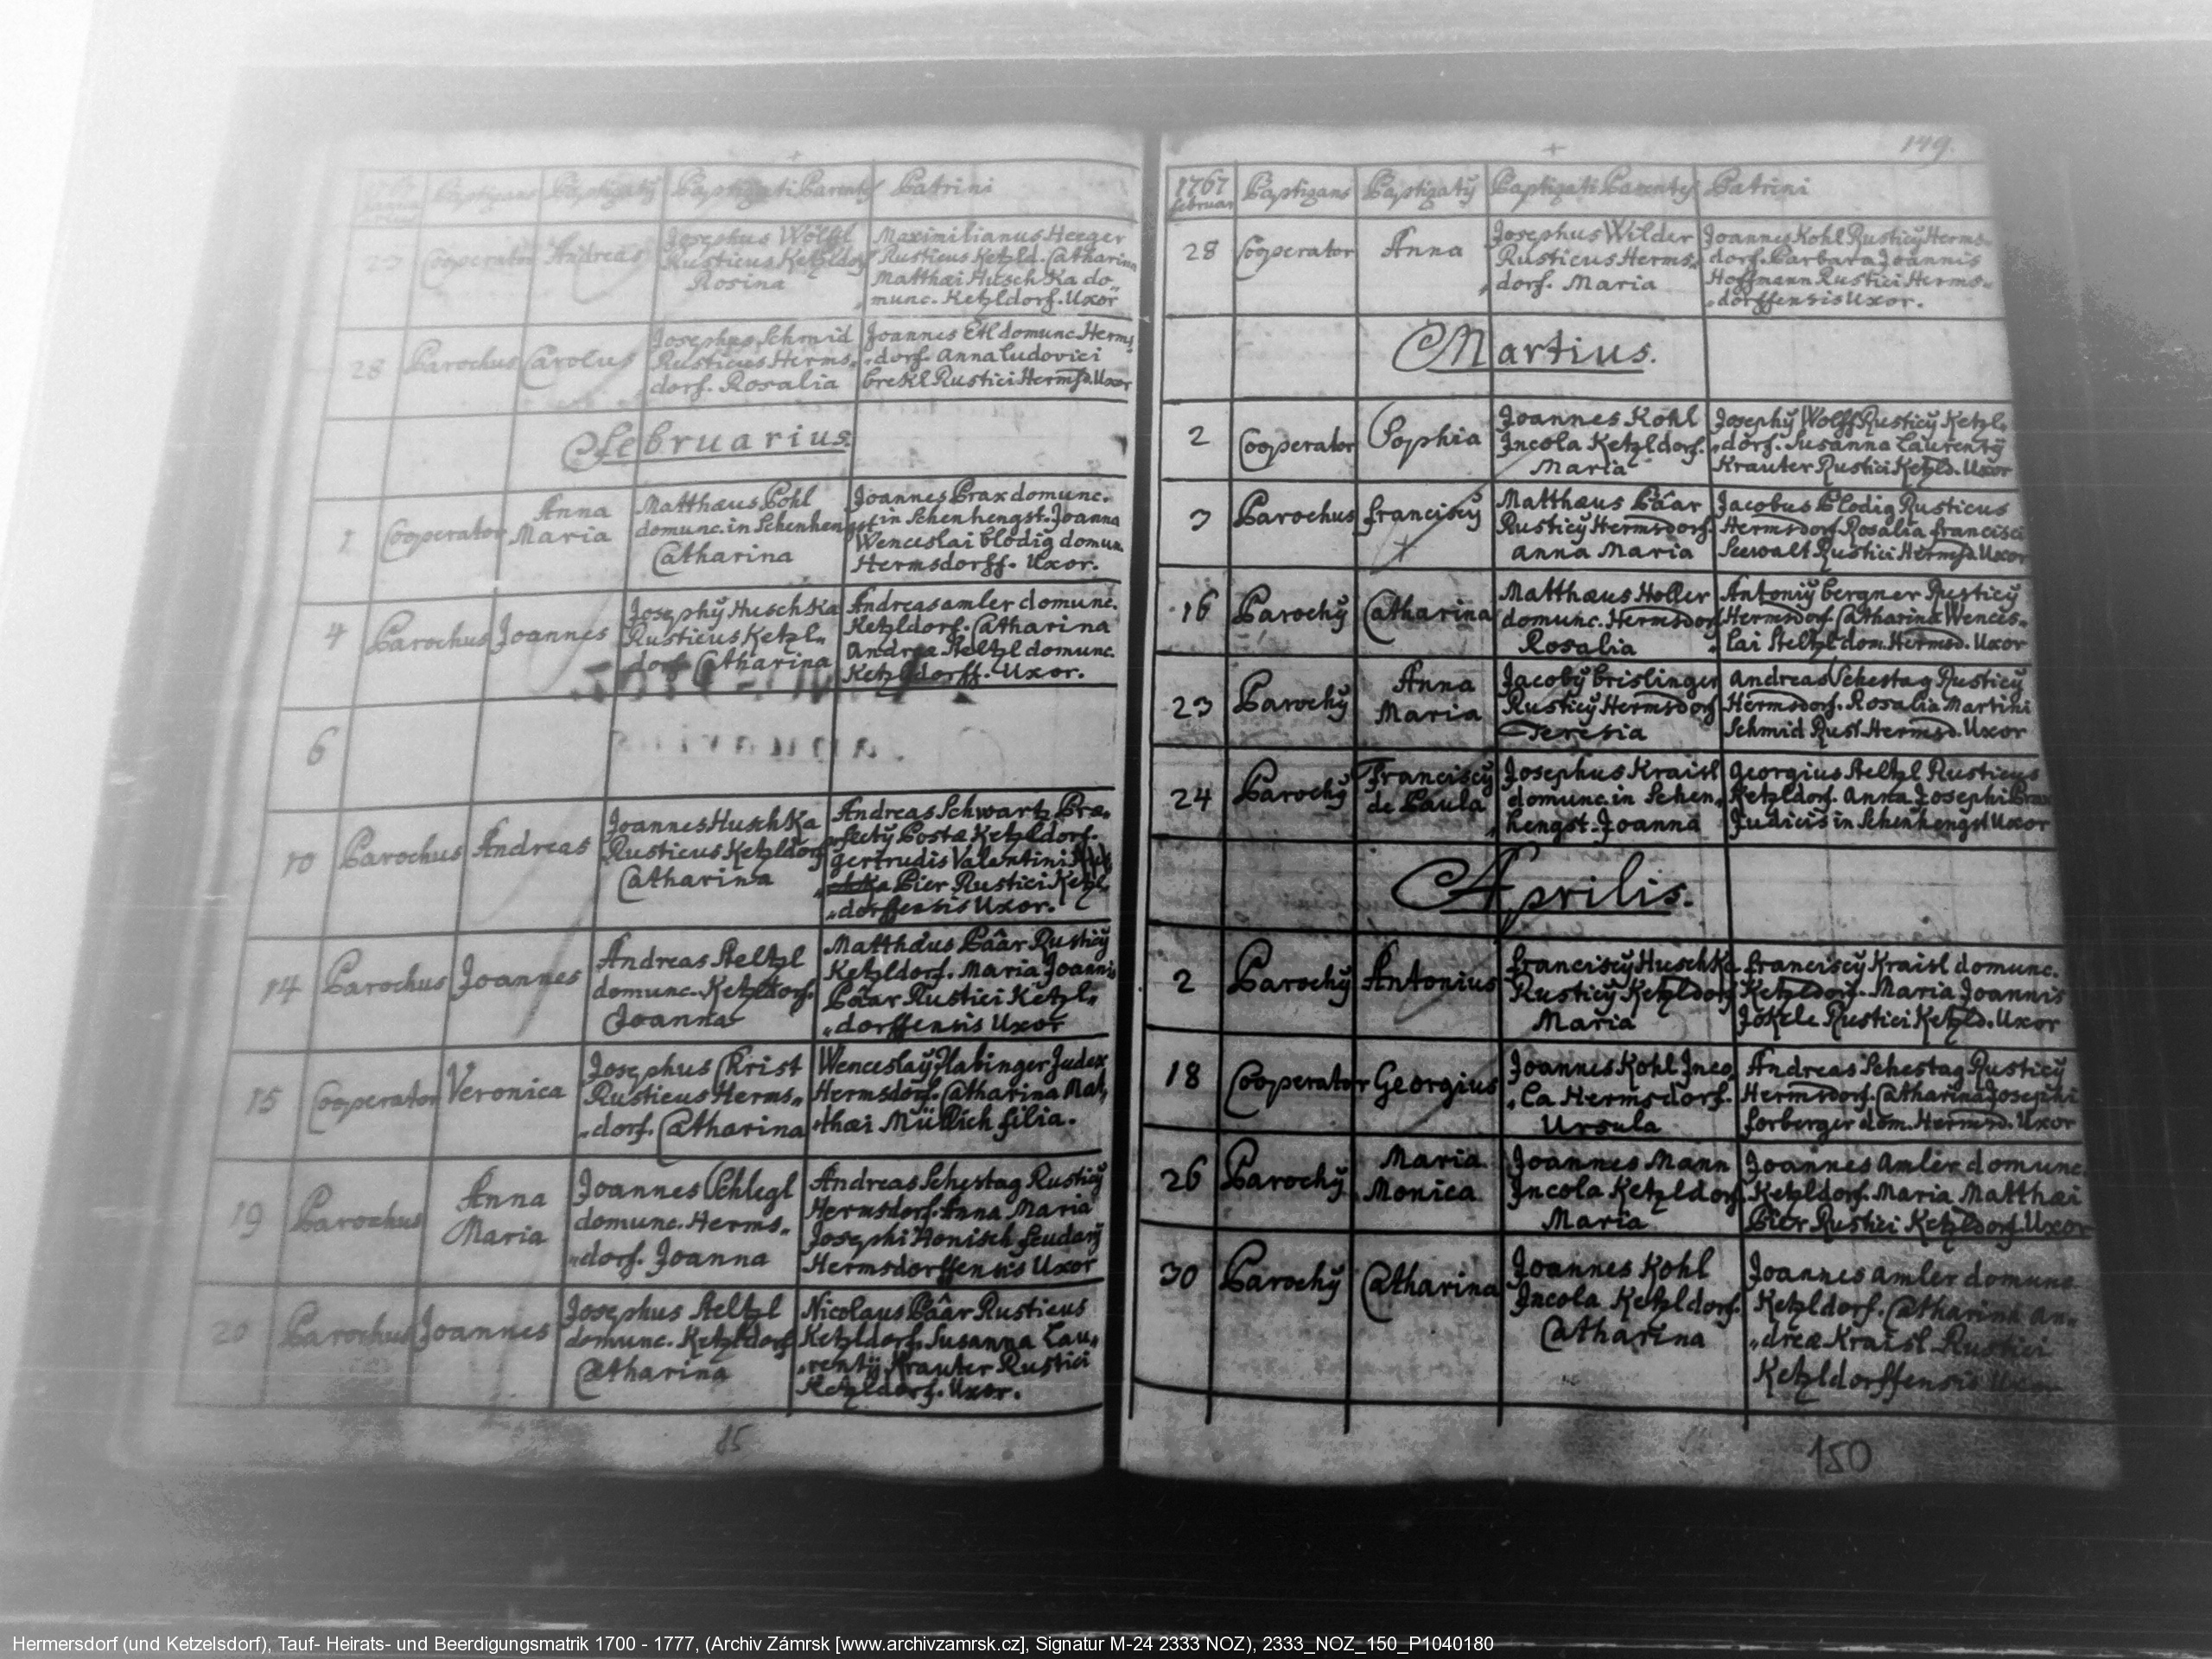 1767 Janua
Baptizans Baptizatus Baptizati Parentes Patrini
Cooperator Andreas
Josephus Wölffl
Rusticus Ketzldorf
Rosina
Maximilianus Heeger
Rusticus Ketzld. Catharina
Matthæi Huschka do„
„munc. Ketzldorf. Uxor
28 Parochus Carolus
Josephus Schmid
Rusticus Herms„
dorf. Rosalia
Joannes Etl domunc. Herms
„dorf. Anna Ludovici
brekl Rustici Hermsd. Uxor
Februarius.
1 Cooperator
Anna
Maria
Matthæus Pohl
domunc. in Schenhengst
Catharina
Joannes Prax domunc.
in Schenhengst. Joanna
Wenceslai blodig domun.
Hermsdorff. Uxor.
4 Parochus Joannes
Josephÿ Huschka
Rusticus Ketzl„
dorf. Catharina
Andreas amler domunc.
Ketzldorf. Catharina
Andreæ Steltzl domunc.
Ketzldorff. Uxor.
6
10 Parochus Andreas
Joannes Huschka
Rusticus Ketzldorf
Catharina
Andreas Schwartz Præ„
„fectÿ Postæ Ketzldorf.
gertrudis Valentini
Bier Rustici Ketzl„
„dorffensis Uxor.
14 Parochus Joannes
Andreas Steltzl
domunc. Ketzldorf.
Joanna
Matthæus Päâr Rusticÿ
Ketzldorf. Maria Joannis
Päâr Rustici Ketzl„
„dorffensis Uxor
15 Cooperator Veronica
Josephus Christ
Rusticus Herms„
„dorf. Catharina
Wenceslaÿ Habinger Judex
Hermsdorf. Catharina Mat„
„thæi Müllich filia.
19 Parochus
Anna
Maria
Joannes Schlegl
domunc. Herms„
„dorf. Joanna
Andreas Schestag Rusticÿ
Hermsdorf. Anna Maria
Josephi Honisch feudarÿ
Hermsdorffensis Uxor
20 Parochus Joannes
Josephus Steltzl
domunc. Ketzldorf
Catharina
Nicolaus Päâr Rusticus
Ketzldorf. Susanna Lau„
„rentÿ Krauter Rustici
Ketzldorf. Uxor.
149.
1767 februar
Baptizans Baptizatÿ Baptizati Parentes Patrini
28 Cooperator Anna
Josephus Wilder
Rusticus Herms„
„dorf. Maria
Joannes Kohl Rusticÿ Herms„
dorf. Barbara Joannis
Hoffmann Rustici Herms„
„dorffensis Uxor.
Martius.
2 Cooperator Sophia
Joannes Kohl
Incola Ketzldorf.
Maria
Josephÿ Wolff Rusticÿ Ketzl„
„dorf. Susanna Laurentÿ
Krauter Rustici Ketzld. Uxor
3 Parochus franciscÿ
Matthæus Päâr
Rusticÿ Hermsdorf.
anna Maria
Jacobus Plodig Rusticus
Hermsdorf. Rosalia francisci
Seewalt Rustici Hermsd. Uxor
16 Parochÿ Catharina
Matthæus Holler
domunc. Hermsdorf
Rosalia
Antoniÿ bergner Rusticÿ
Hermsdorf. Catharina Wences„
„lai Steltzl dom. Hermsd. Uxor
23 Parochÿ
Anna
Maria
Jacobÿ brislinger
Rusticÿ Hermsdorf
Teresia
andreas Schestag Rusticÿ
Hermsdorf. Rosalia Martini
Schmid Rust. Hermsd. Uxor
24 Parochÿ
Franciscÿ
de Paula
Josephus Kraisl
domunc. in Schen„
„hengst. Joanna
georgius Steltzl Rusticus
Ketzldorf. Anna Josephi Prax
Judicis in Schenhengst Uxor
Aprilis.
2 Parochÿ Antonius
franciscÿ Huschka
Rusticÿ Ketzldorf
Maria
franciscÿ Kraisl domunc.
Ketzldorf. Maria Joannis
Jokele Rustici Ketzld. Uxor
18 Cooperator Georgius
Joannes Kohl Inco
„la Hermsdorf.
Ursula
Andreas Schestag Rusticÿ
Hermsdorf. Catharina Josephi
forberger dom. Hermsd. Uxor
26 Parochÿ
Maria
Monica
Joannes Mann
Incola Ketzldorf
Maria
Joannes amler domunc.
Ketzldorf. Maria Matthæi
Bier Rustici Ketzldorf. Uxor
30 Parochÿ Catharina
Joannes Kohl
Incola Ketzldorf.
Catharina
Joannes amler domunc.
Ketzldorf. Catharina an„
„dreæ Kraisl Rustici
Ketzldorffensis Uxor
150
Hermersdorf (und Ketzelsdorf), Tauf- Heirats- und Beerdigungsmatrik 1700 - 1777, (Archiv Zámrsk [www.archivzamrsk.cz], Signatur M-24 2333 NOZ), 2333_NOZ_150_P1040180